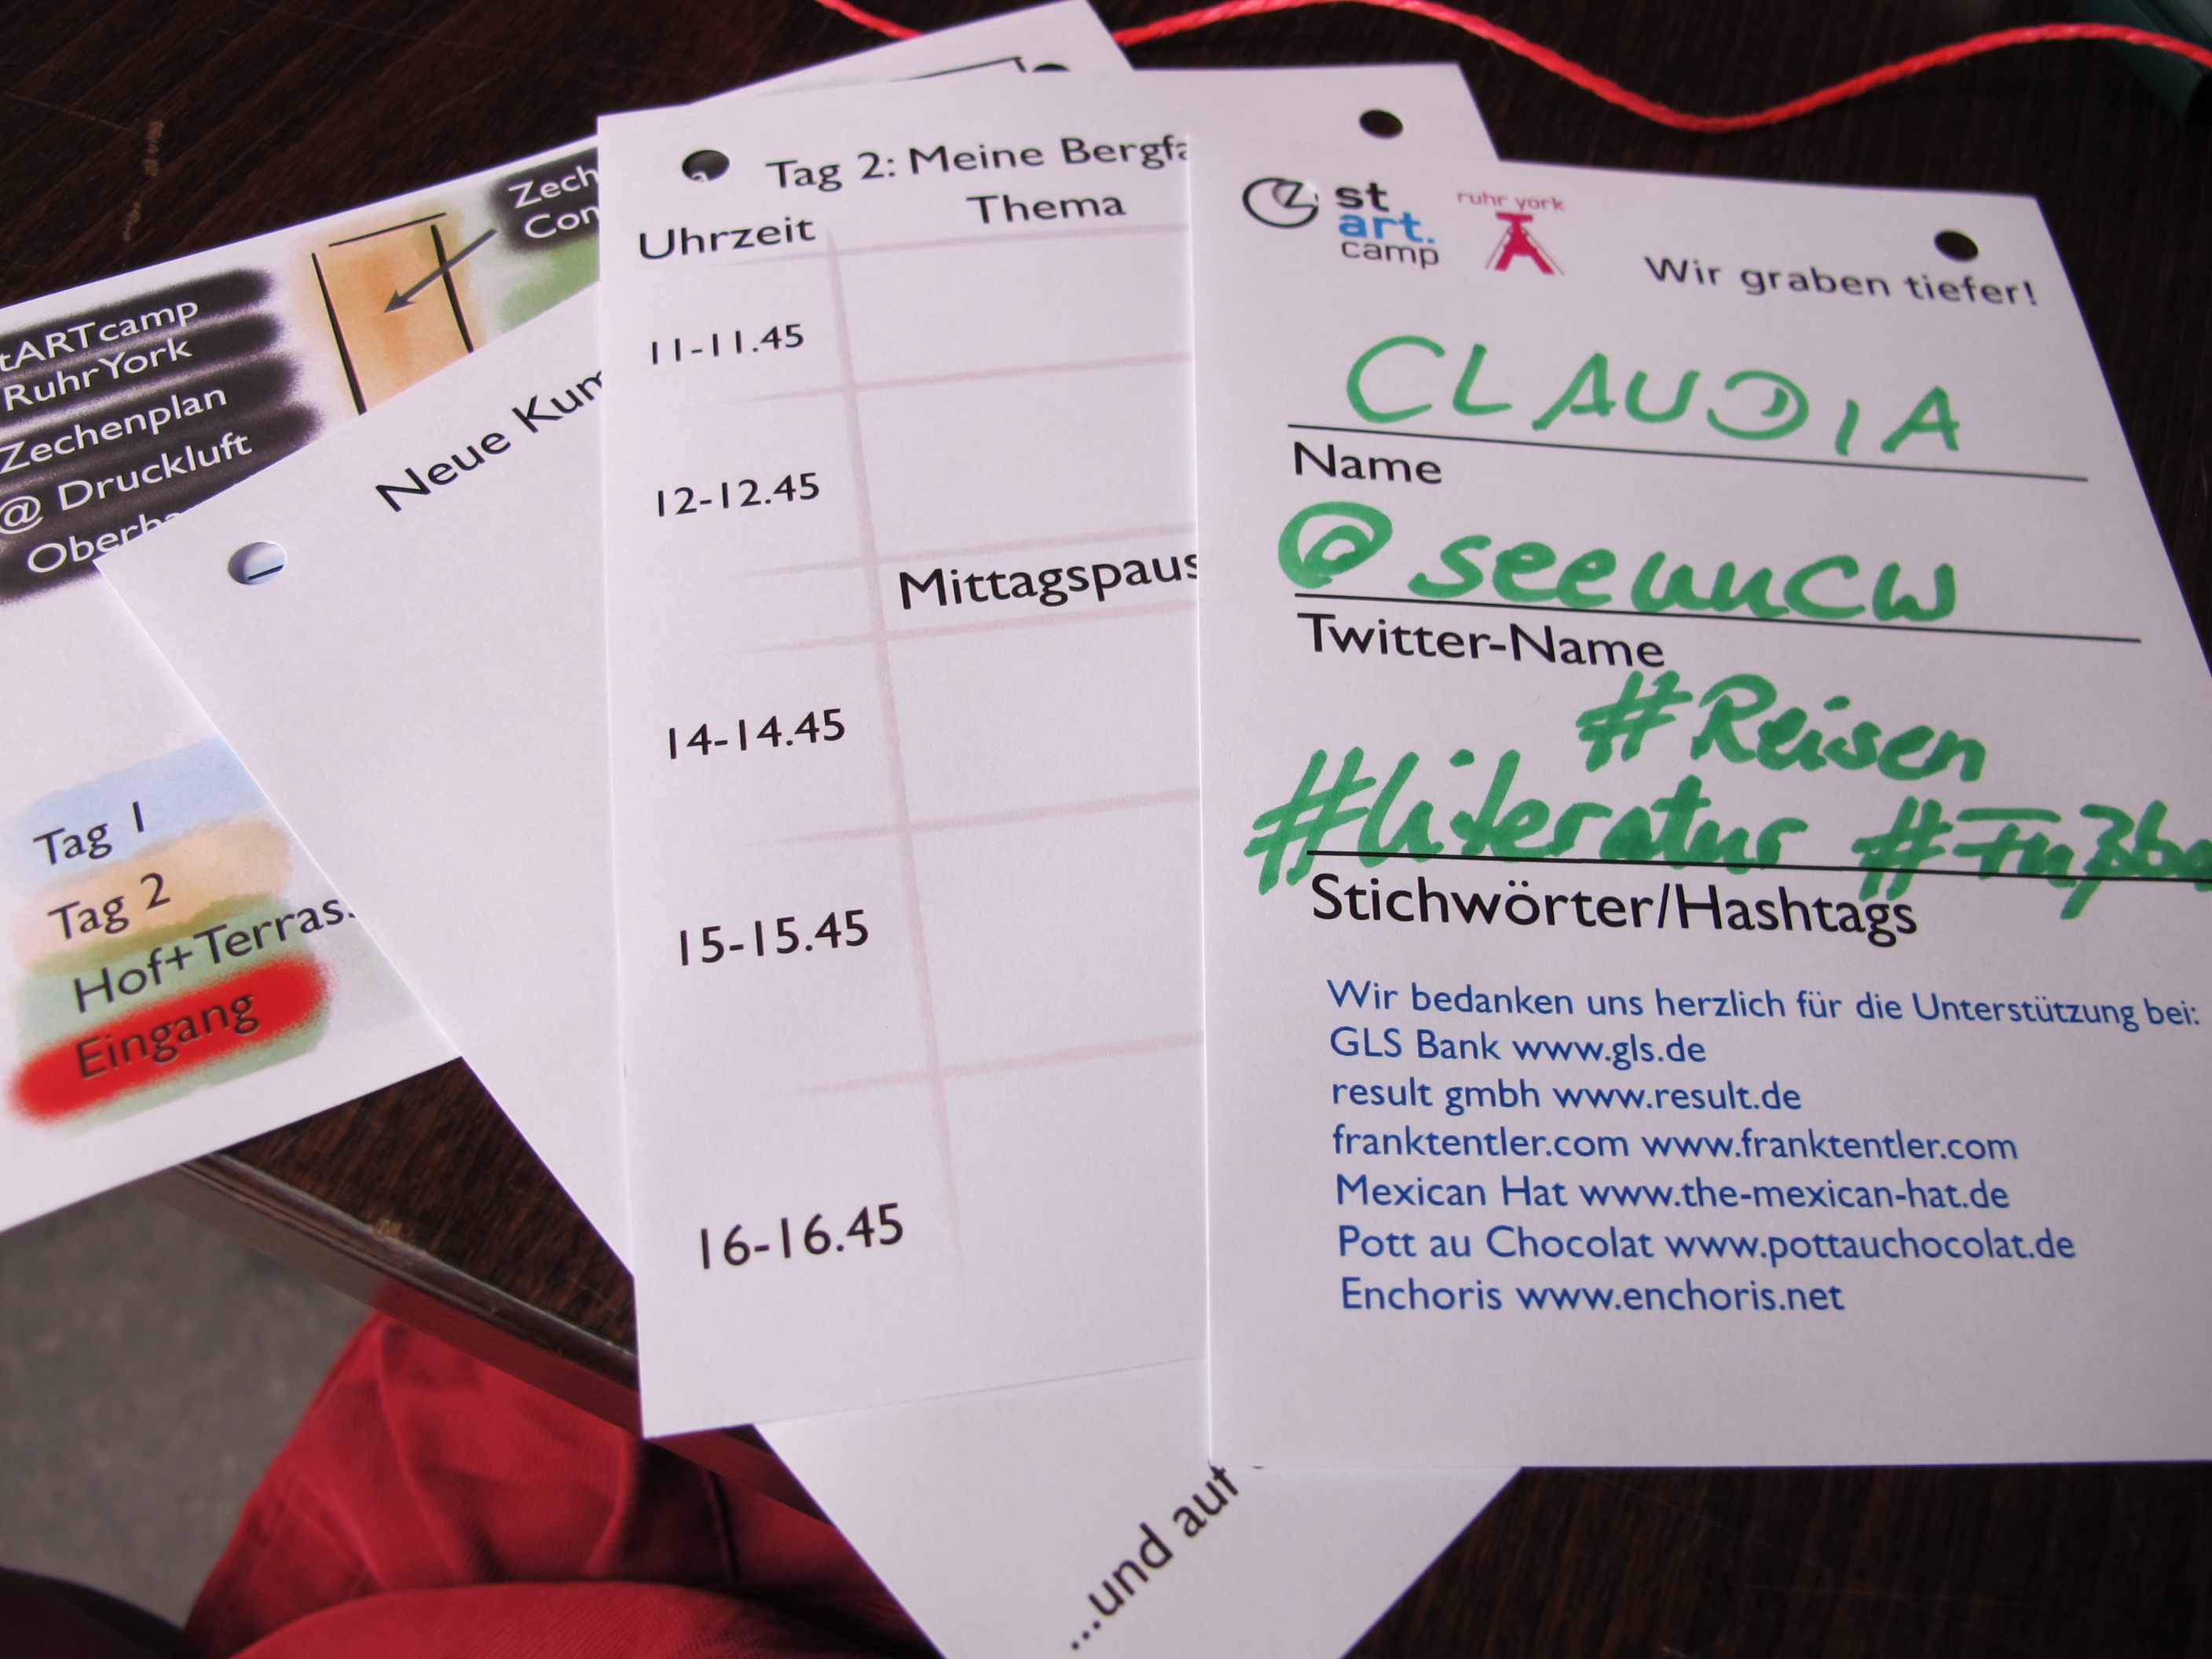 tARTcamp
RuhrYork
Zechenplan
@ Druckluft
Oberha
Zech
Con
Tag 1
Tag 2
Hof+Terras
Eingang
Neue Kum
...und auf
Tag 2: Meine Bergfa
Uhrzeit Thema
11-11.45
12-12.45
Mittagspaus
14-14.45
15-15.45
16-16.45
st
art.
camp
ruhr york
Wir graben tiefer!
CLAUDIA
Name
@seewucw
Twitter-Name
#Reisen
#literatur #Fußba
Stichwörter/Hashtags
Wir bedanken uns herzlich für die Unterstützung bei:
GLS Bank www.gls.de
result gmbh www.result.de
franktentler.com www.franktentler.com
Mexican Hat www.the-mexican-hat.de
Pott au Chocolat www.pottauchocolat.de
Enchoris www.enchoris.net